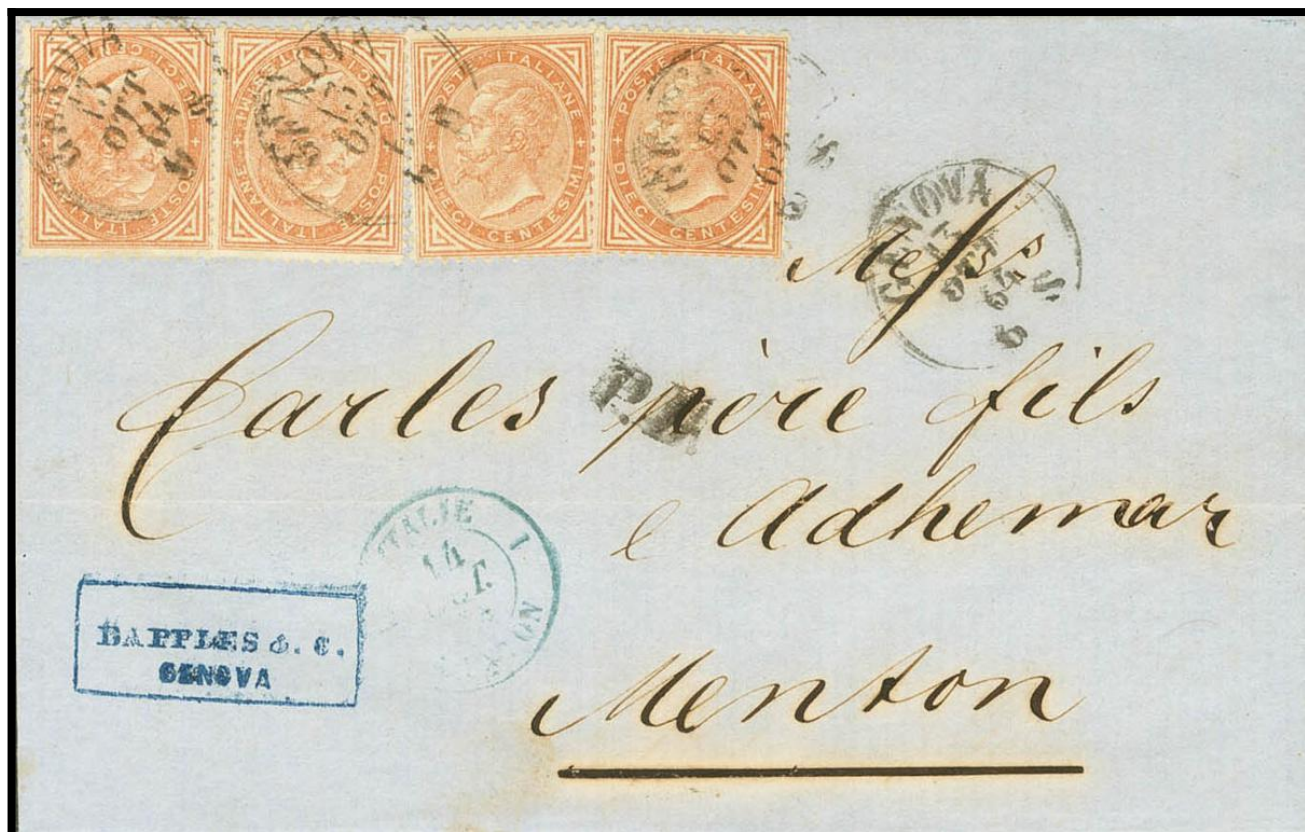 POSTE ITALIANE
DIECI CENTESIMI
POSTE ITALIANE
DIECI CENTESIMI
POSTE ITALIANE
DIECI CENTESIMI
POSTE ITALIANE
DIECI CENTESIMI
GENOVA
13
OTT
64
GENOVA
13
GENOVA
OTT
64
S
Mess.rs
Carles père fils
P.D.
e Adhemar
ITALIE
14
MENTON
1
BAPPLES & C.
GENOVA
Menton